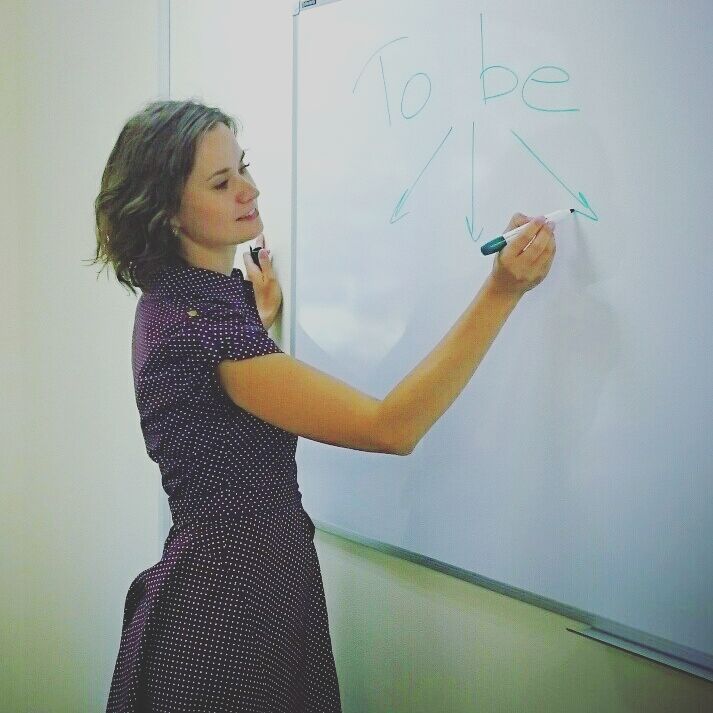 To be